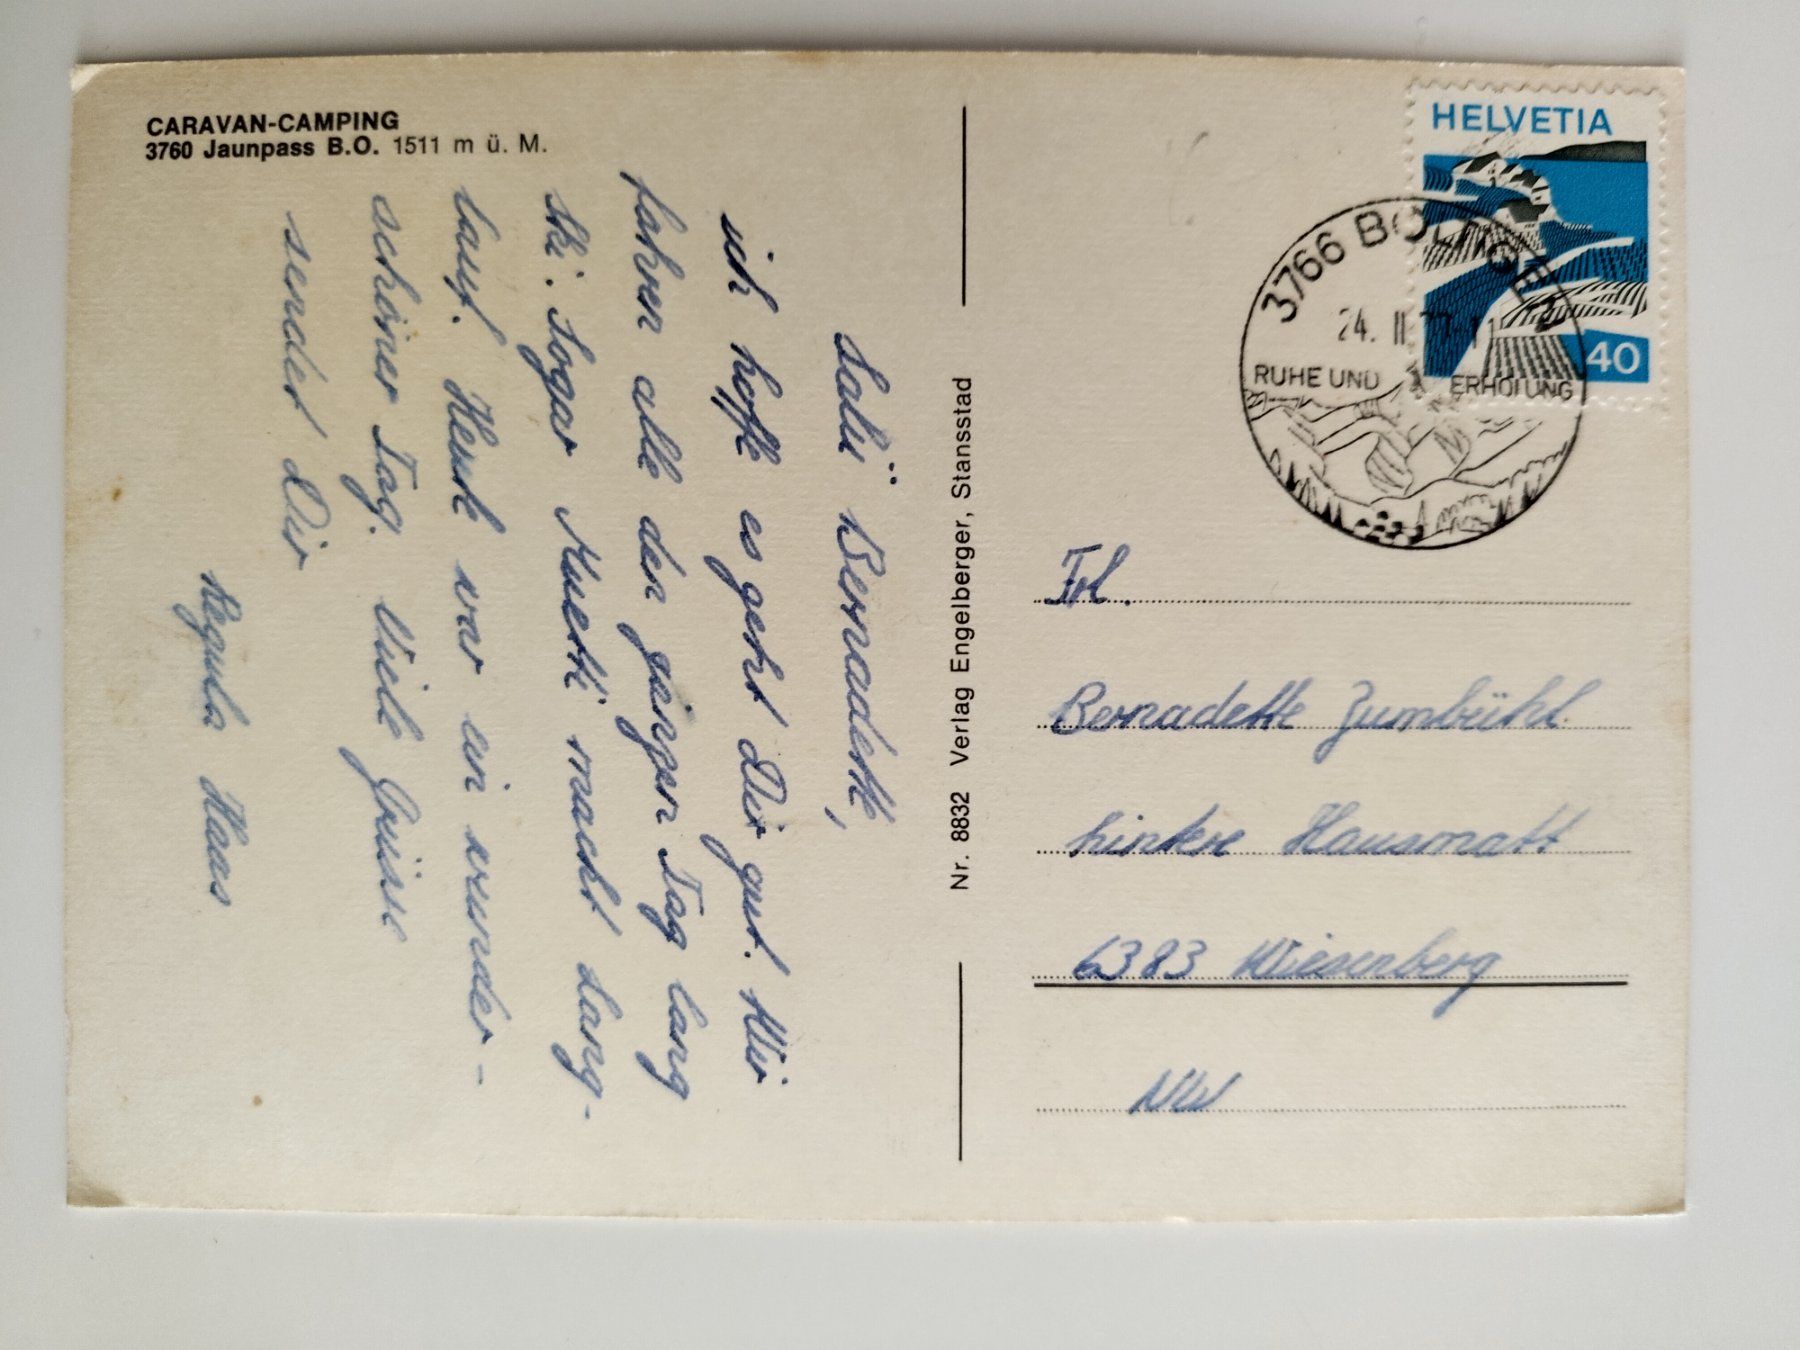 CARAVAN-CAMPING
3760 Jaunpass B.O. 1511 m ü. M.
Salü Bernadette,
ich hoffe es geht Dir gut. Wir
fahren alle den ganzen Tag lang
Ski. Sogar Muetti macht Lang-
lauf. Heute war ein wunder-
schöner Tag. Viele Grüsse
sendet Dir
Regula Haas
Nr. 8832 Verlag Engelberger, Stansstad
HELVETIA
40
3766 BOLTIGEN
24. II
RUHE UND ERHOLUNG
Frl.
Bernadette Zumbühl
hintere Hausmatt
6383 Wiesenberg
NW